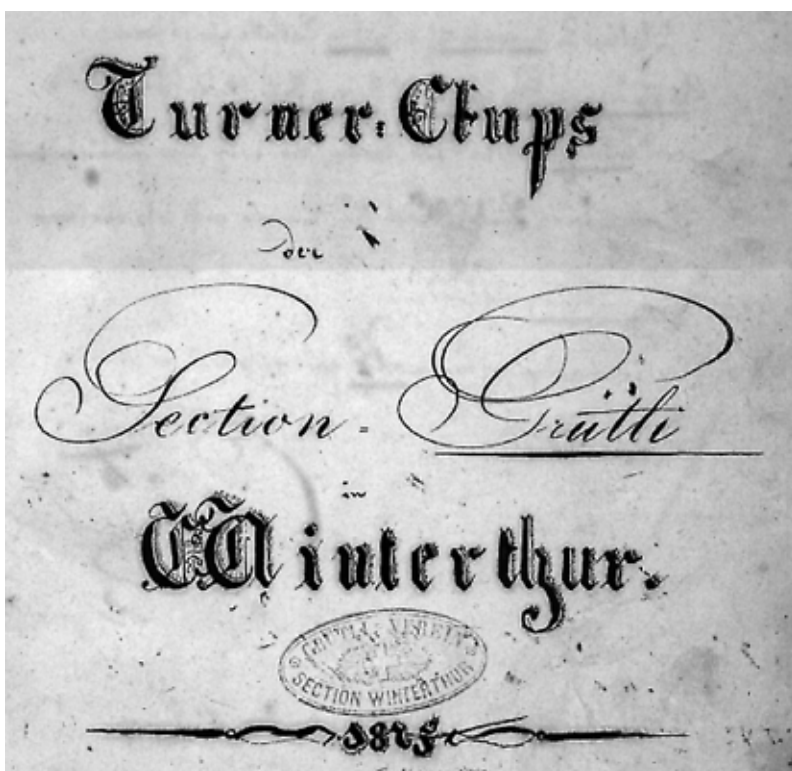 Turner-Clups
der
Section - Grütli
in
Winterthur.
GRÜTLI-VEREIN
SECTION WINTERTHUR